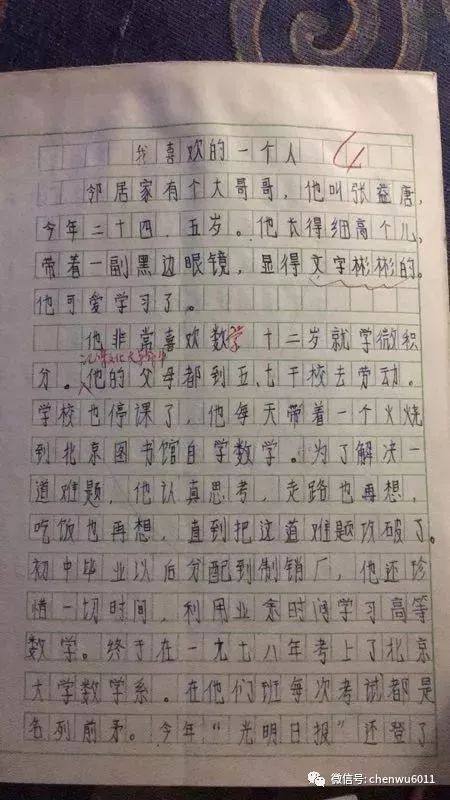 我喜欢的一个人
邻居家有个大哥哥，他叫张益唐，
今年二十四、五岁。他太得细高个儿，
带着一副黑边眼镜，显得文字彬彬的。
他可爱学习了。
他非常喜欢数学十二岁就学微积
文化大革命中
分。他的父母都到五、七干校去劳动。
学校也停课了，他每天带着一个火烧
到北京图书馆自学数学。为了解决一
道难题，他认真思考，走路也再想，
吃饭也再想，直到把这道难题攻破了。
初中毕业以后分配到制锁厂，他还珍
惜一切时间，利用业余时间学习高等
数学。终于在一九七八年考上了北京
大学数学系。在他们班每次考试都是
名列前矛。今年“光明日报”还登了
微信号: chenwu6011